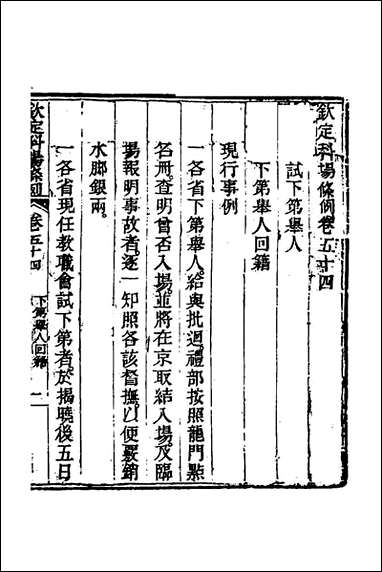 欽定科場條例卷五十四
試下第舉人
下第舉人回籍
現行事例
一各省下第舉人給與批迴禮部按照龍門點
名冊查明曾否入場並將在京取結入場及臨
場報明事故者逐一知照各該督撫以便覈銷
水脚銀兩
一各省現任教職會試下第者於揭曉後五日
欽定科場條例 卷五十四 下第舉人回籍 一